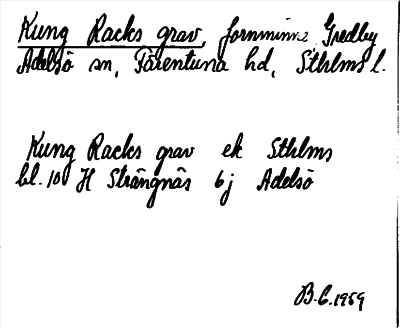 Kung Racks grav, fornminne, Gredby
Adelsö sn, Färentuna hd, Sthlms l.
Kung Racks grav ek Sthlms
bl. 10 H Strängnäs 6j Adelsö
B.C. 1959